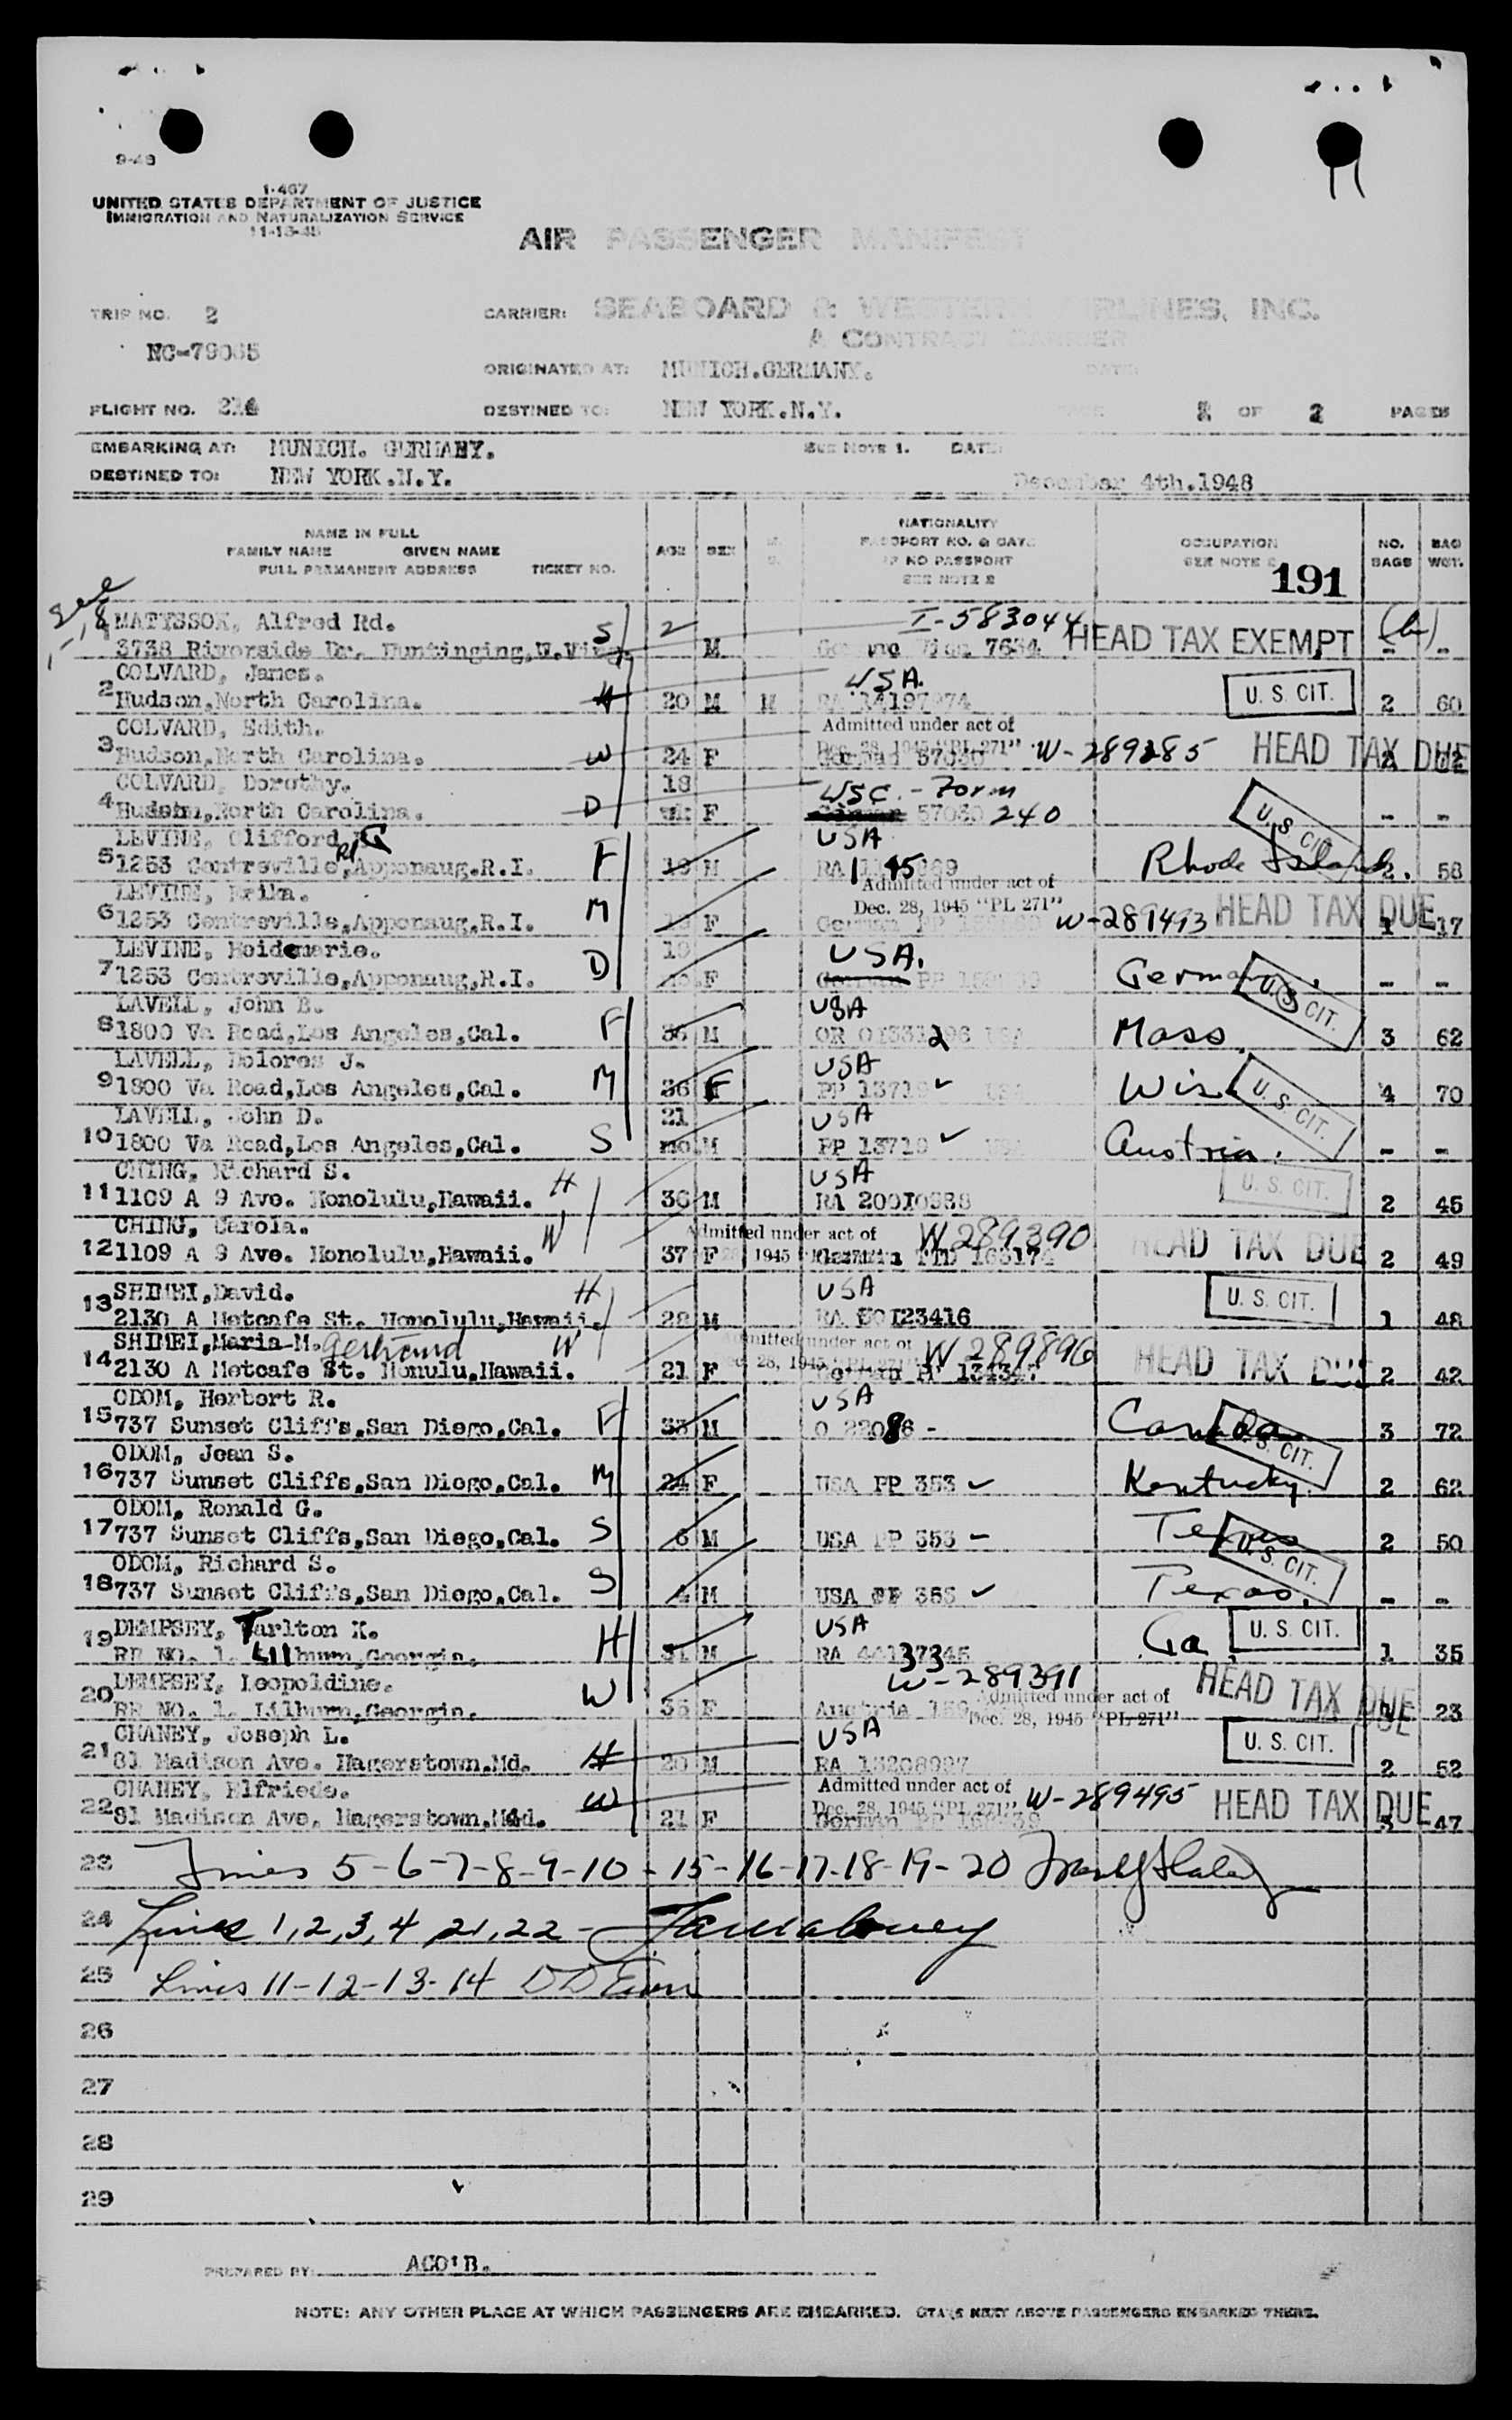 9-48
I-467
UNITED STATES DEPARTMENT OF JUSTICE
IMMIGRATION AND NATURALIZATION SERVICE
11-13-45
AIR PASSENGER MANIFEST
TRIP NO. 2
CARRIER: SEABOARD & WESTERN AIRLINES, INC.
A CONTRACT CARRIER
ORIGINATED AT: MUNICH.GERMANY. DATE:
FLIGHT NO. DESTINED TO: NEW YORK.N.Y. PAGE OF 2 PAGES
EMBARKING AT: MUNICH. GERMANY. SEE NOTE 1. DATE:
DESTINED TO: NEW YORK.N.Y. December 4th.1948
NAME IN FULL
FAMILY NAME GIVEN NAME
FULL PERMANENT ADDRESS TICKET NO.
AGE SEX
NATIONALITY
PASSPORT NO. & DATE
IF NO PASSPORT
SEE NOTE 2
OCCUPATION
SEE NOTE
NO. BAGS
BAG WGT.
191
1 Alfred Rd. I-583044
3738 Riverside Dr. S 2 M HEAD TAX EXEMPT - -
COLVARD, James. USA.
2 Hudson,North Carolina. H 20 M M U. S. CIT. 2 60
COLVARD, Edith. Admitted under act of
3 Hudson,North Carolina. W 24 F Dec. 28, 1945 "PL 271" W-289285 HEAD TAX DUE
COLVARD, Dorothy. 18 USC. - Form
4 North Carolina. D F 57030 240 U. S. CIT. - -
LEVINE, Clifford G USA
5 1253 Centreville Rd,Apponaug.R.I. F M RA Rhode Island 2. 58
LEVINE, Erika. Admitted under act of
6 1253 Centreville,Apponaug,R.I. M F Dec. 28, 1945 "PL 271" W-289493 HEAD TAX DUE 1 17
LEVINE, Heidemarie. USA.
7 1253 Centreville,Apponaug,R.I. D F Germany. U. S. CIT. - -
LAVELL, John E. USA
8 1800 Va Road,Los Angeles,Cal. F 36 M Mass. 3 62
LAVELL, Dolores J. USA
9 1800 Va Road,Los Angeles,Cal. M 36 F PP 13719 Wis. U. S. CIT. 4 70
LAVELL, John D. 21 USA
10 1800 Va Road,Los Angeles,Cal. S mo. M PP 13719 Austria. - -
CHING, Richard S. USA
11 1109 A 9 Ave. Honolulu,Hawaii. H 36 M U. S. CIT. 2 45
CHING, Carola. Admitted under act of W 289390
12 1109 A 9 Ave. Honolulu,Hawaii. W 37 F 1945 HEAD TAX DUE 2 49
SHIMEI,David. USA
13 2130 A Metcafe St. Honolulu,Hawaii. H 28 M U. S. CIT. 1 48
SHIMEI,Maria M. Admitted under act of W 289896
14 2130 A Metcafe St. Honulu,Hawaii. W 21 F HEAD TAX DUE 2 42
ODOM, Herbert R. USA
15 737 Sunset Cliffs,San Diego,Cal. F 33 M U. S. CIT. 3 72
ODOM, Jean S.
16 737 Sunset Cliffs,San Diego,Cal. M 24 F USA PP 353 Kentucky. 2 62
ODOM, Ronald G.
17 737 Sunset Cliffs,San Diego,Cal. S 6 M USA PP 353 Texas U. S. CIT. 2 50
ODOM, Richard S.
18 737 Sunset Cliffs,San Diego,Cal. S 4 M USA PP 353 Texas. - -
DEMPSEY, Tarlton K. USA
19 RR NO. 1. Lilburn,Georgia. H 31 M RA Ga. U. S. CIT. 1 35
DEMPSEY, Leopoldine. W-289391
20 RR NO. 1. Lilburn,Georgia. W 36 F Austria Admitted under act of Dec. 28, 1945 "PL 271" HEAD TAX DUE 23
CHANEY, Joseph L. USA
21 81 Madison Ave. Hagerstown.Md. H 20 M RA U. S. CIT. 2 52
CHANEY, Elfriede. Admitted under act of
22 81 Madison Ave. Hagerstown,Md. W 21 F Dec. 28, 1945 "PL 271" W-289495 HEAD TAX DUE 3 47
23 Lines 5-6-7-8-9-10 - 15-16-17-18-19-20
24 Lines 1,2,3,4 21,22 -
25 Lines 11-12-13-14
26
27
28
29
PREPARED BY: ACO'B.
NOTE: ANY OTHER PLACE AT WHICH PASSENGERS ARE EMBARKED. STATE NEXT ABOVE PASSENGERS EMBARKED THERE.